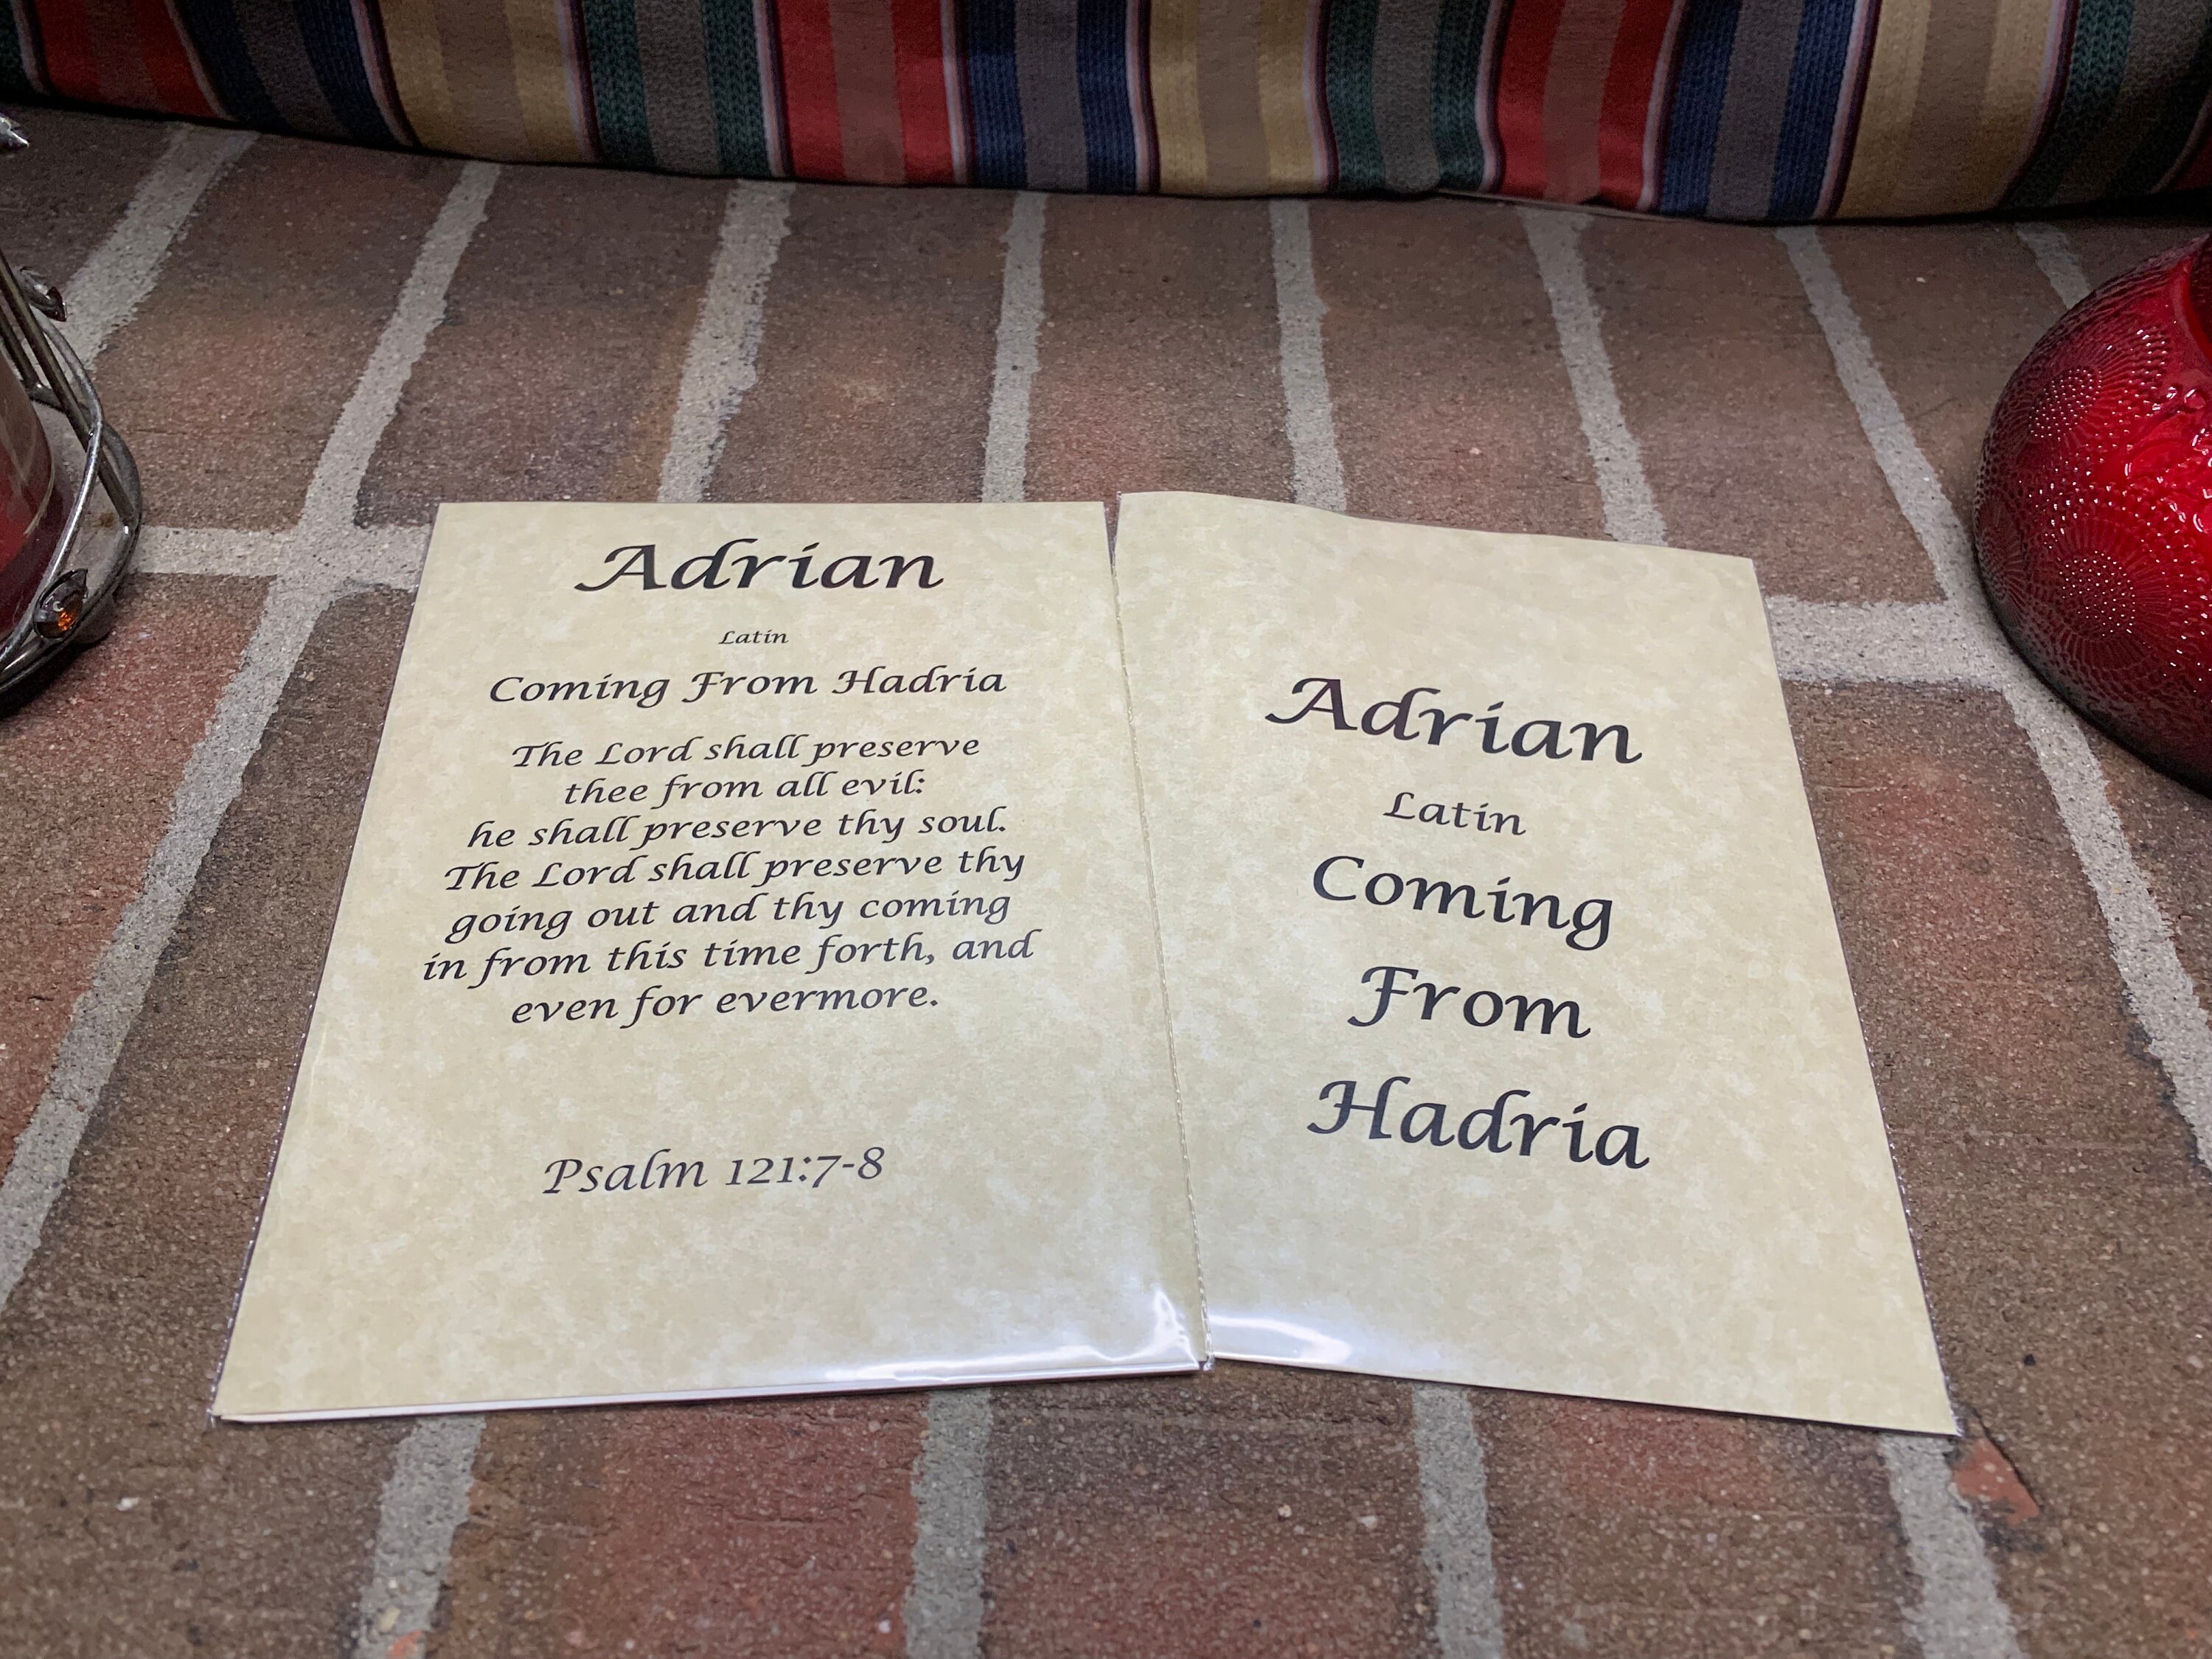 Adrian
Latin
Coming From Hadria
The Lord shall preserve
thee from all evil:
he shall preserve thy soul.
The Lord shall preserve thy
going out and thy coming
in from this time forth, and
even for evermore.
Psalm 121:7-8
Adrian
Latin
Coming
From
Hadria